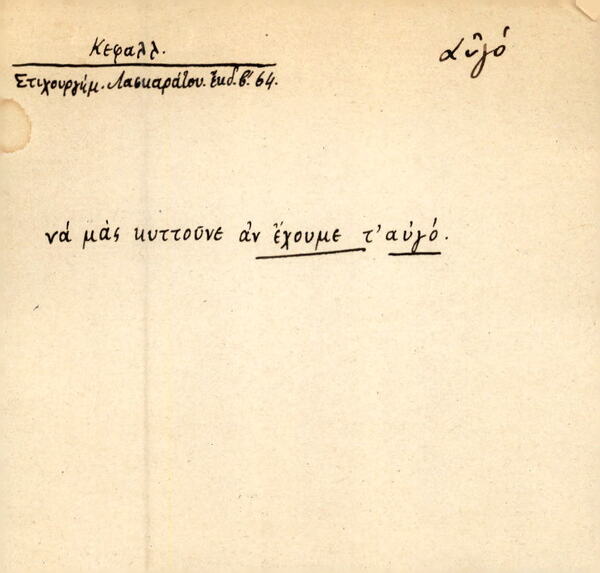 Κεφαλλ.
αὐγό
Στιχουργήμ. Λασκαράτου. ἔκδ. β' 64.
νά μᾶς κυττοῦνε ἀν ἔχουμε τ' αὐγό.